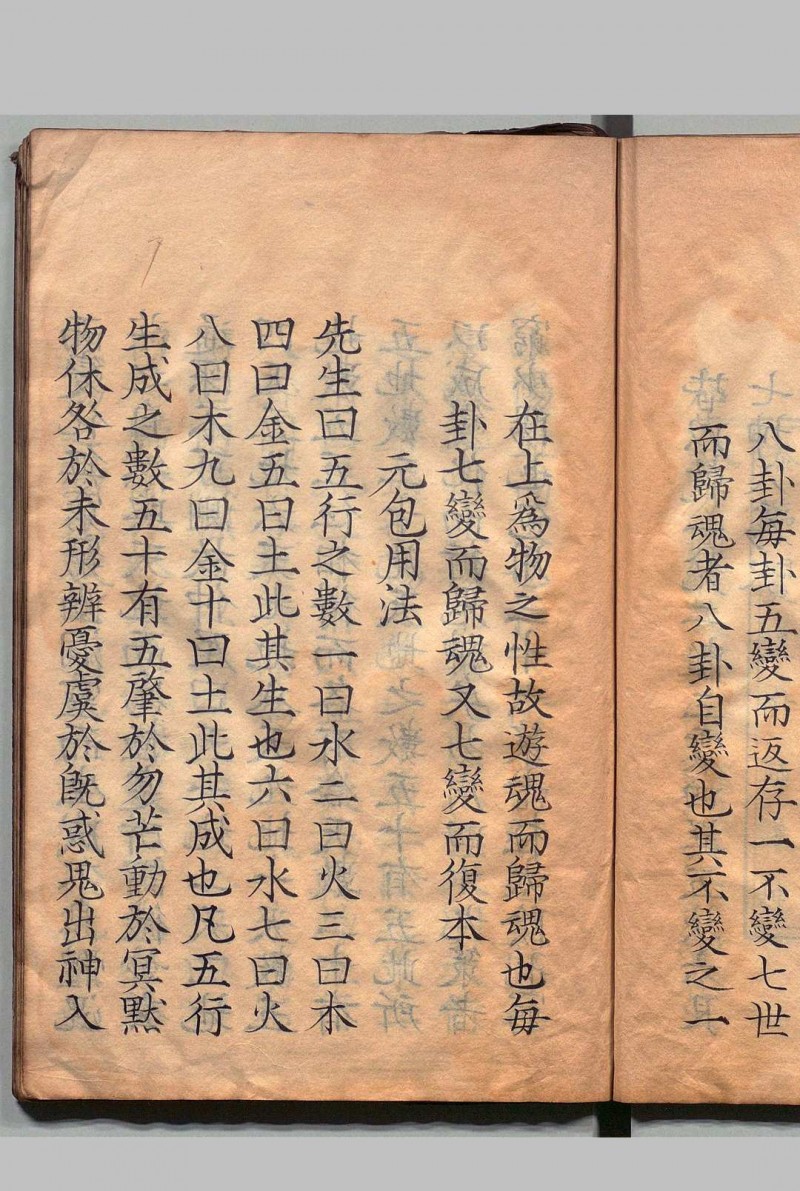 八卦每卦五變而返存一不變七世
而歸魂者八卦自變也其不變之一
在上爲物之性故遊魂而歸魂也每
卦七變而歸魂又七變而復本
元包用法
先生曰五行之數一曰水二曰火三曰木
四曰金五曰土此其生也六曰水七曰火
八曰木九曰金十曰土此其成也凡五行
生成之數五十有五肇於勿芒動於冥默
物休咎於未形辨憂虞於旣惑鬼出神入